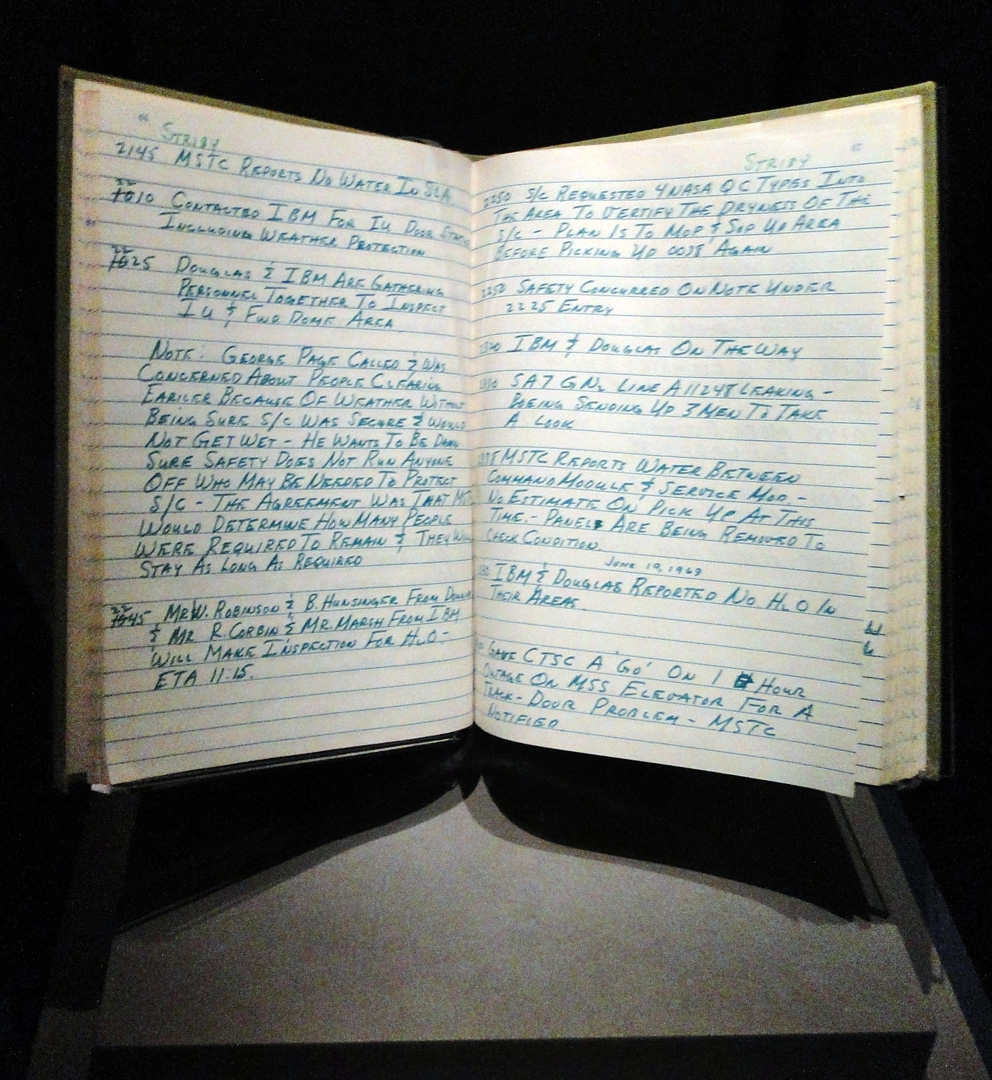 STRIBY
2145 MSTC REPORTS NO WATER IN SLA
22
1010 CONTACTED IBM FOR IU DOOR
INCLUDING WEATHER PROTECTION
22
25 DOUGLAS & IBM ARE GATHERING
PERSONNEL TOGETHER TO INSPECT
IU & FWD DOME AREA
NOTE: GEORGE PAGE CALLED & WAS
CONCERNED ABOUT PEOPLE CLEARING
EARILER BECAUSE OF WEATHER WITHOUT
BEING SURE S/C WAS SECURE & WOULD
NOT GET WET - HE WANTS TO BE DAMN
SURE SAFETY DOES NOT RUN ANYONE
OFF WHO MAY BE NEEDED TO PROTECT
S/C - THE AGREEMENT WAS THAT
WOULD DETERMINE HOW MANY PEOPLE
WERE REQUIRED TO REMAIN & THEY
STAY AS LONG AS REQUIRED
22
45 MR W. ROBINSON & B. HUNSINGER FROM
& MR R. CORBIN & MR. MARSH FROM IBM
WILL MAKE INSPECTION FOR H2O -
ETA 11:15.
STRIBY
2250 S/C REQUESTED 4 NASA QC TYPES INTO
THE AREA TO VERTIFY THE DRYNESS OF THE
S/C - PLAN IS TO MOP & SOP UP AREA
BEFORE PICKING UP 0038 AGAIN
2250 SAFETY CONCURRED ON NOTE UNDER
2225 ENTRY
IBM & DOUGLAS ON THE WAY
SA7 GN2 LINE A11248 LEAKING -
BOEING SENDING UP 3 MEN TO TAKE
A LOOK
MSTC REPORTS WATER BETWEEN
COMMAND MODULE & SERVICE MOD -
NO ESTIMATE ON PICK UP AT THIS
TIME - PANELS ARE BEING REMOVED TO
CHECK CONDITION.
JUNE 19, 1969
IBM & DOUGLAS REPORTED NO H2O IN
THEIR AREAS
GAVE CTSC A 'GO' ON 1 HOUR
OUTAGE ON MSS ELEVATOR FOR A
TRACK - DOOR PROBLEM - MSTC
NOTIFIED